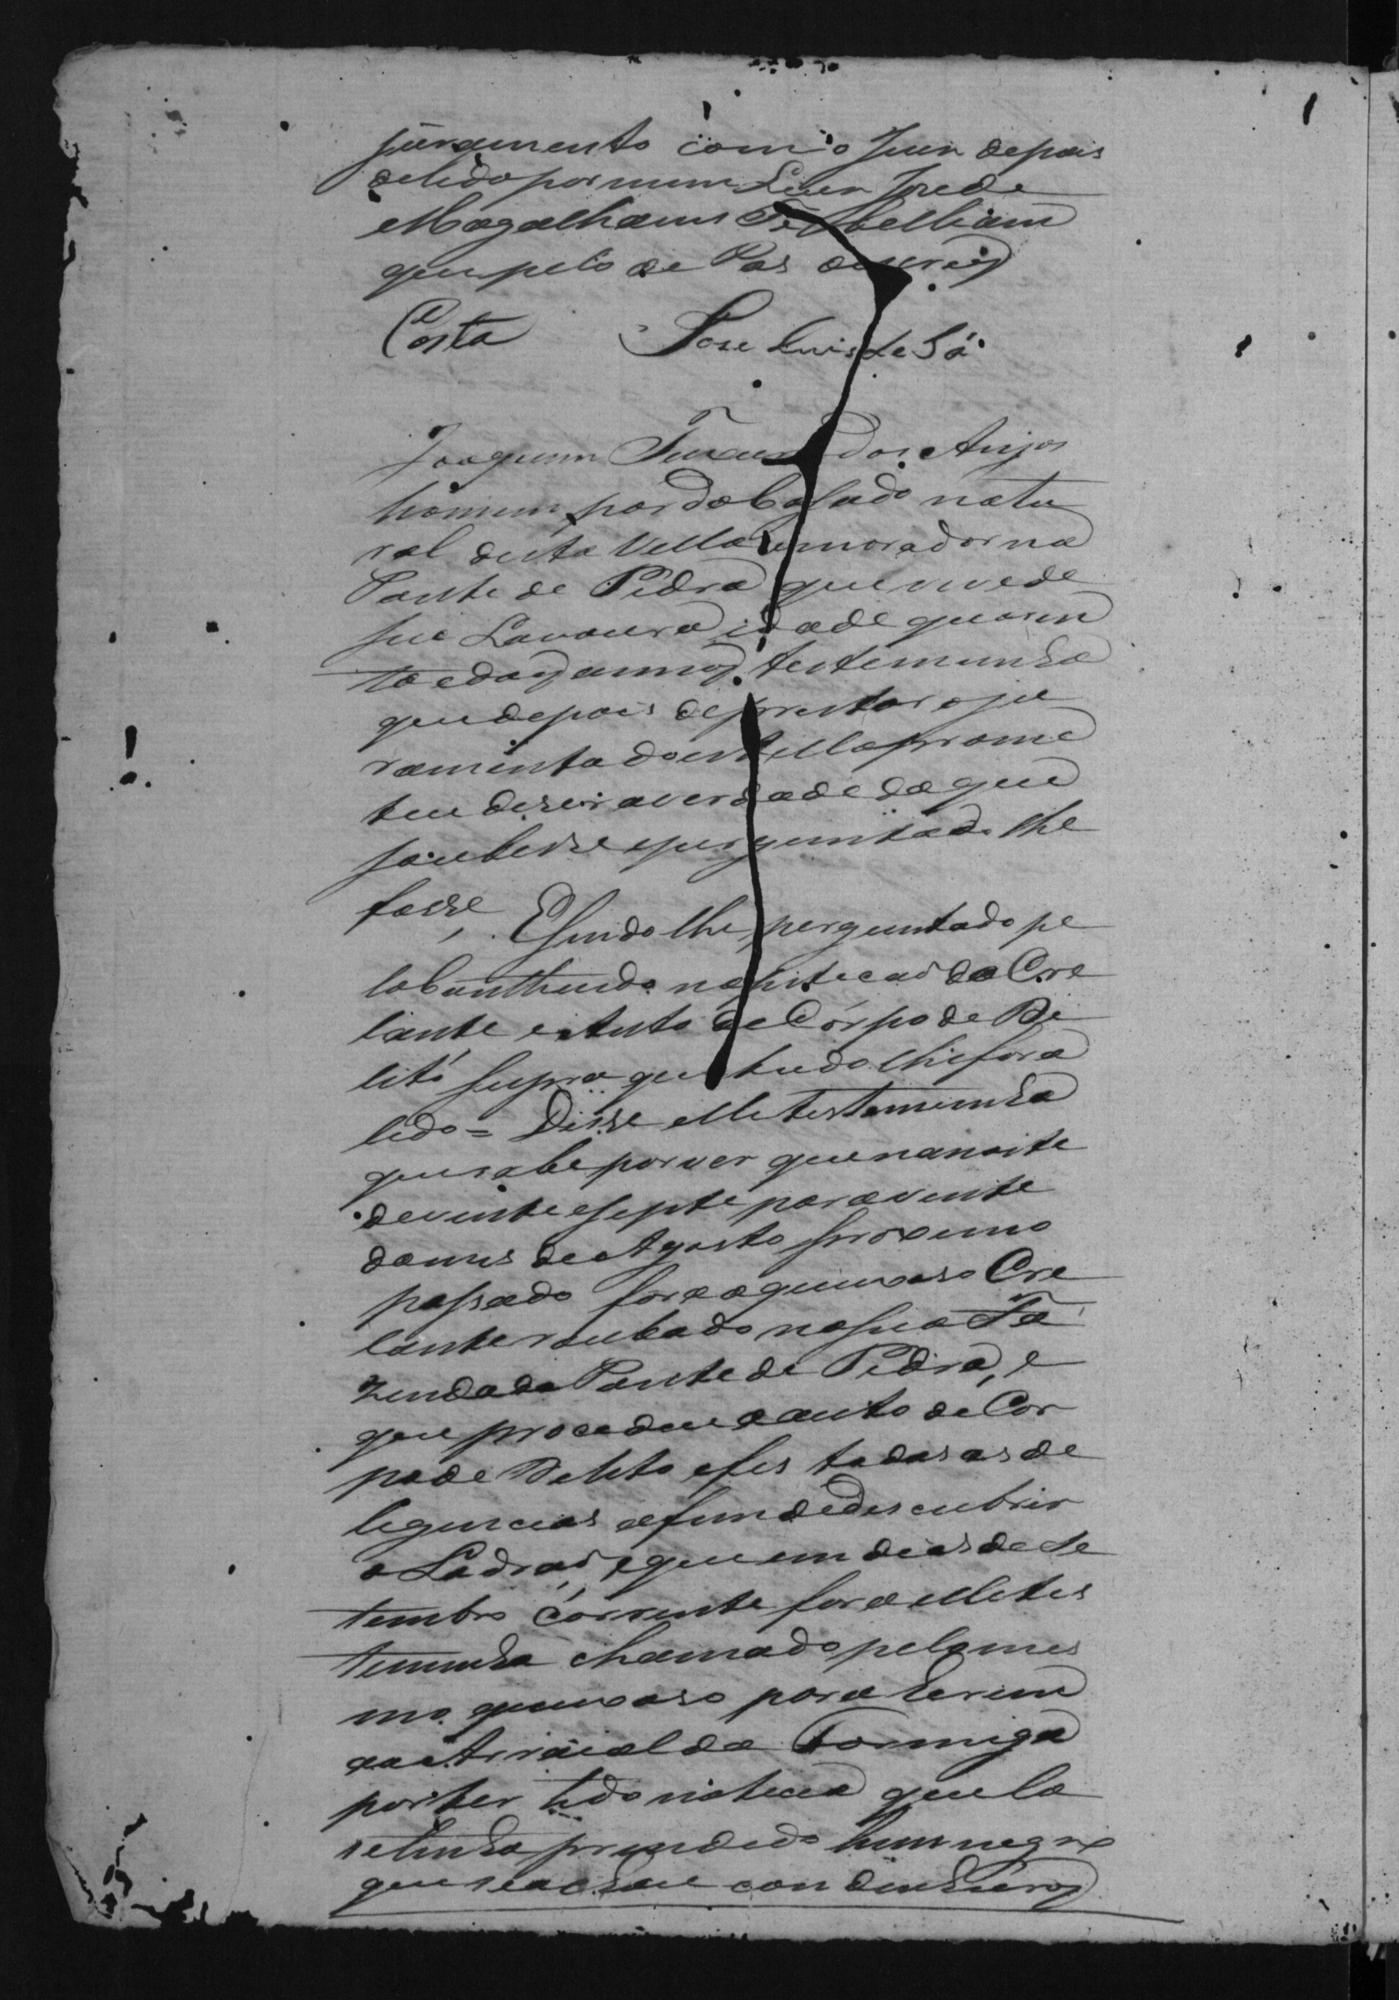 juramento com o Juiz depois
de lido por mim Luiz José de
Magalhaens Tabelliam
que pelo de Pas escrevy
Costa José Luis de Sá
Joaquim dos Anjos
homem pardo Casado natu
ral desta Villa e morador na
Ponte de Pedra que vive de
sua Lavoura idade quaren
ta e dois annos testemunha
que depois de prestar o ju
ramento do estillo prome
teu dizer a verdade do que
soubesse e perguntado lhe
fosse, E sendo lhe perguntado pe
lo Conthiudo na petição do Cre
lante e Auto de Córpo de De
lito supra que tudo lhe fora
lido = Disse elle testemunha
que sabe por ver que na noite
de vinte e septe para vinte
do mes de Agosto proximo
passado fora o queixoso Cre
lante roubado na sua Fa
zenda da Ponte de Pedra, e
que procedeu a auto de Cor
po de Delito e fes todas as de
ligencias afim de descubrir
o Ladrão, e que em dias de Se
tembro corrente fora elle tes
temunha chamado pelo mes
mo queixoso para Serem
ao Arraial da Formiga
por ter tido noticia que la
se tinha prendido hum negro
que se achou com dinheiro